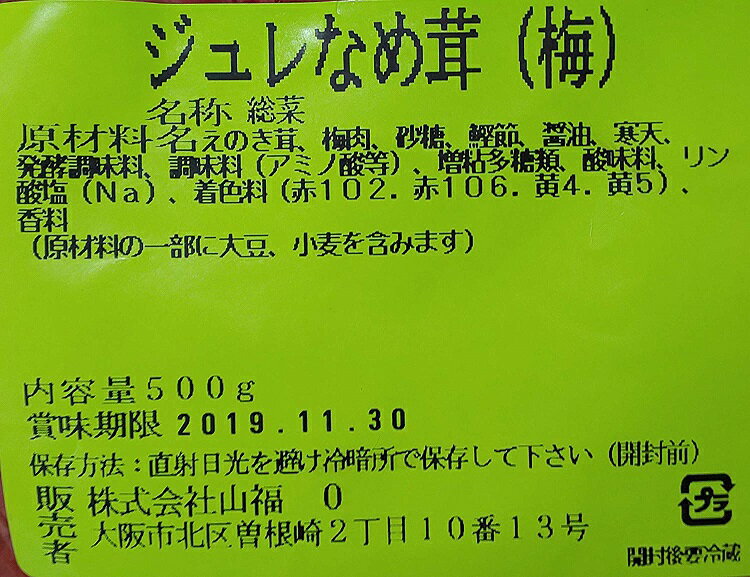 ジュレなめ茸(梅)
名称 総菜
原材料名えのき茸、梅肉、砂糖、鰹節、醤油、寒天、
発酵調味料、調味料(アミノ酸等)、増粘多糖類、酸味料、リン
酸塩(Na)、着色料(赤102.赤106.黄4.黄5)、
香料
(原材料の一部に大豆、小麦を含みます)
内容量500g
賞味期限 2019.11.30
保存方法:直射日光を避け冷暗所で保存して下さい(開封前)
販売者 株式会社山福 0
大阪市北区曽根崎2丁目10番13号
プラ
開封後要冷蔵